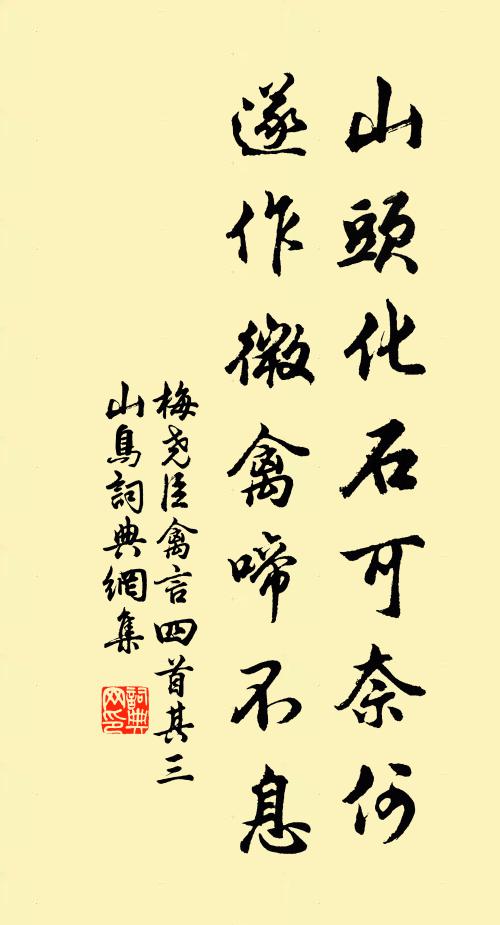 山頭化石可奈何
遂作微禽啼不息
梅尧臣禽言四首其三
山鳥詞典網集
詞典网印